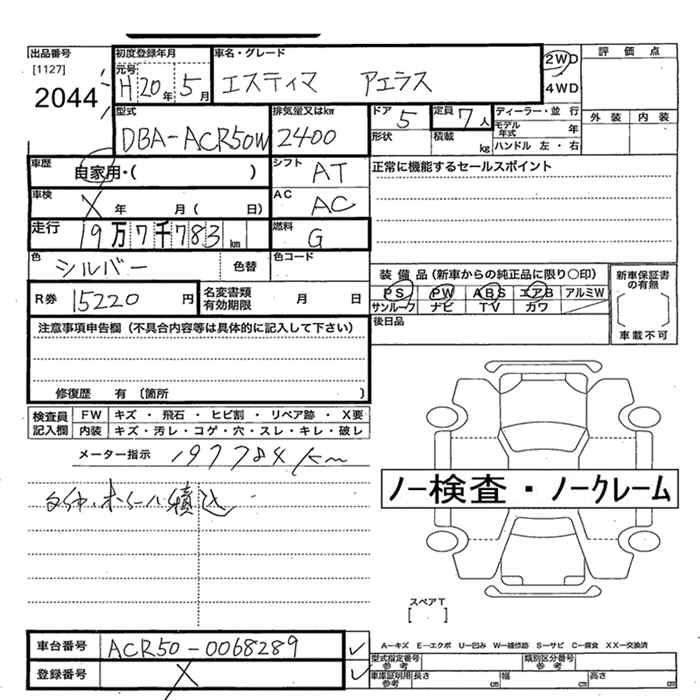 出品番号
[1127]
2044
初度登録年月
元号
H 20年 5月
車名・グレード
エスティマ アエラス
2WD
4WD
評価点
外装 内装
型式
DBA-ACR50W
排気量又はkw
2400
ドア 5
形状
定員 7人
積載 kg
ディーラー・並行
モデル年式 年
ハンドル 左・右
車歴
自家用・( )
シフト
AT
正常に機能するセールスポイント
車検
X 年 月( 日)
AC
AC
走行
19万7千783km
燃料
G
色
シルバー
色替
色コード
R券 15220 円
名変書類有効期限 月 日
装備品(新車からの純正品に限り○印)
PS PW ABS エアB アルミW
サンルーフ ナビ TV カワ
後日品
新車保証書の有無
車載不可
注意事項申告欄(不具合内容等は具体的に記入して下さい)
修復歴 有〔箇所 〕
検査員記入欄
FW キズ・飛石・ヒビ割・リペア跡・X要
内装 キズ・汚レ・コゲ・穴・スレ・キレ・破レ
メーター指示 197784km
タイヤ・ホイール積込
ノー検査・ノークレーム
スペアT
[ ]
車台番号 ACR50-0068289 ✓
登録番号 X ✓
A-キズ E-エクボ U-凹み W-補修跡 S-サビ C-腐食 XX-交換済
型式指定番号参考
類別区分番号参考
車庫証明用参考 長さ cm 幅 cm 高さ cm